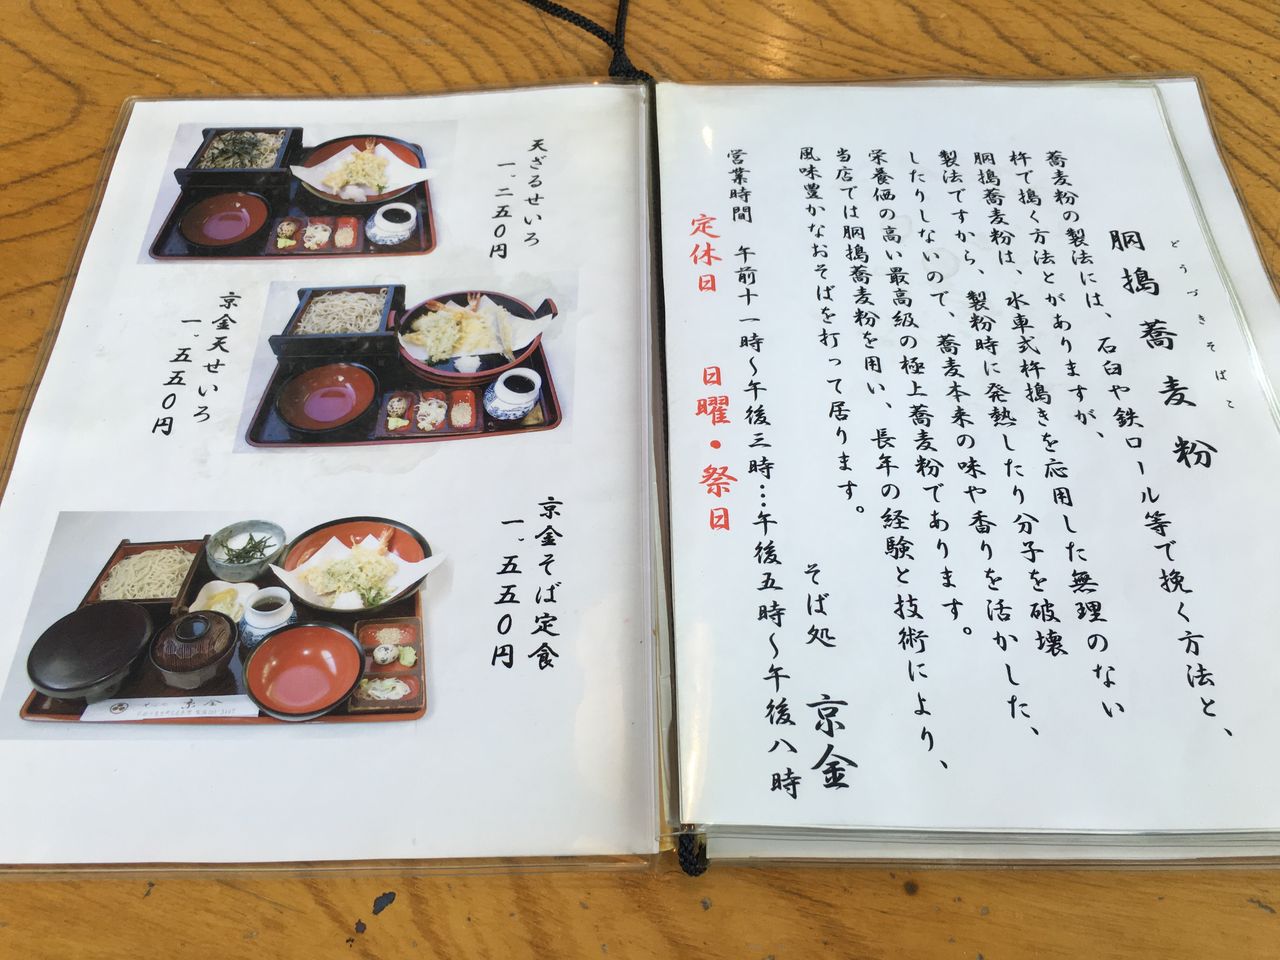 どうづきそばこ
胴搗蕎麦粉
蕎麦粉の製法には、石臼や鉄ロール等で挽く方法と、
杵で搗く方法とがありますが、
胴搗蕎麦粉は、水車式杵搗きを応用した無理のない
製法ですから、製粉時に発熱したり分子を破壊
したりしないので、蕎麦本来の味や香りを活かした、
栄養価の高い最高級の極上蕎麦粉であります。
当店では胴搗蕎麦粉を用い、長年の経験と技術により、
風味豊かなおそばを打って居ります。
そば処 京金
営業時間 午前十一時〜午後三時…午後五時〜午後八時
定休日 日曜・祭日
天ざるせいろ
一、二五〇円
京金天せいろ
一、五五〇円
京金そば定食
一、五五〇円
京金